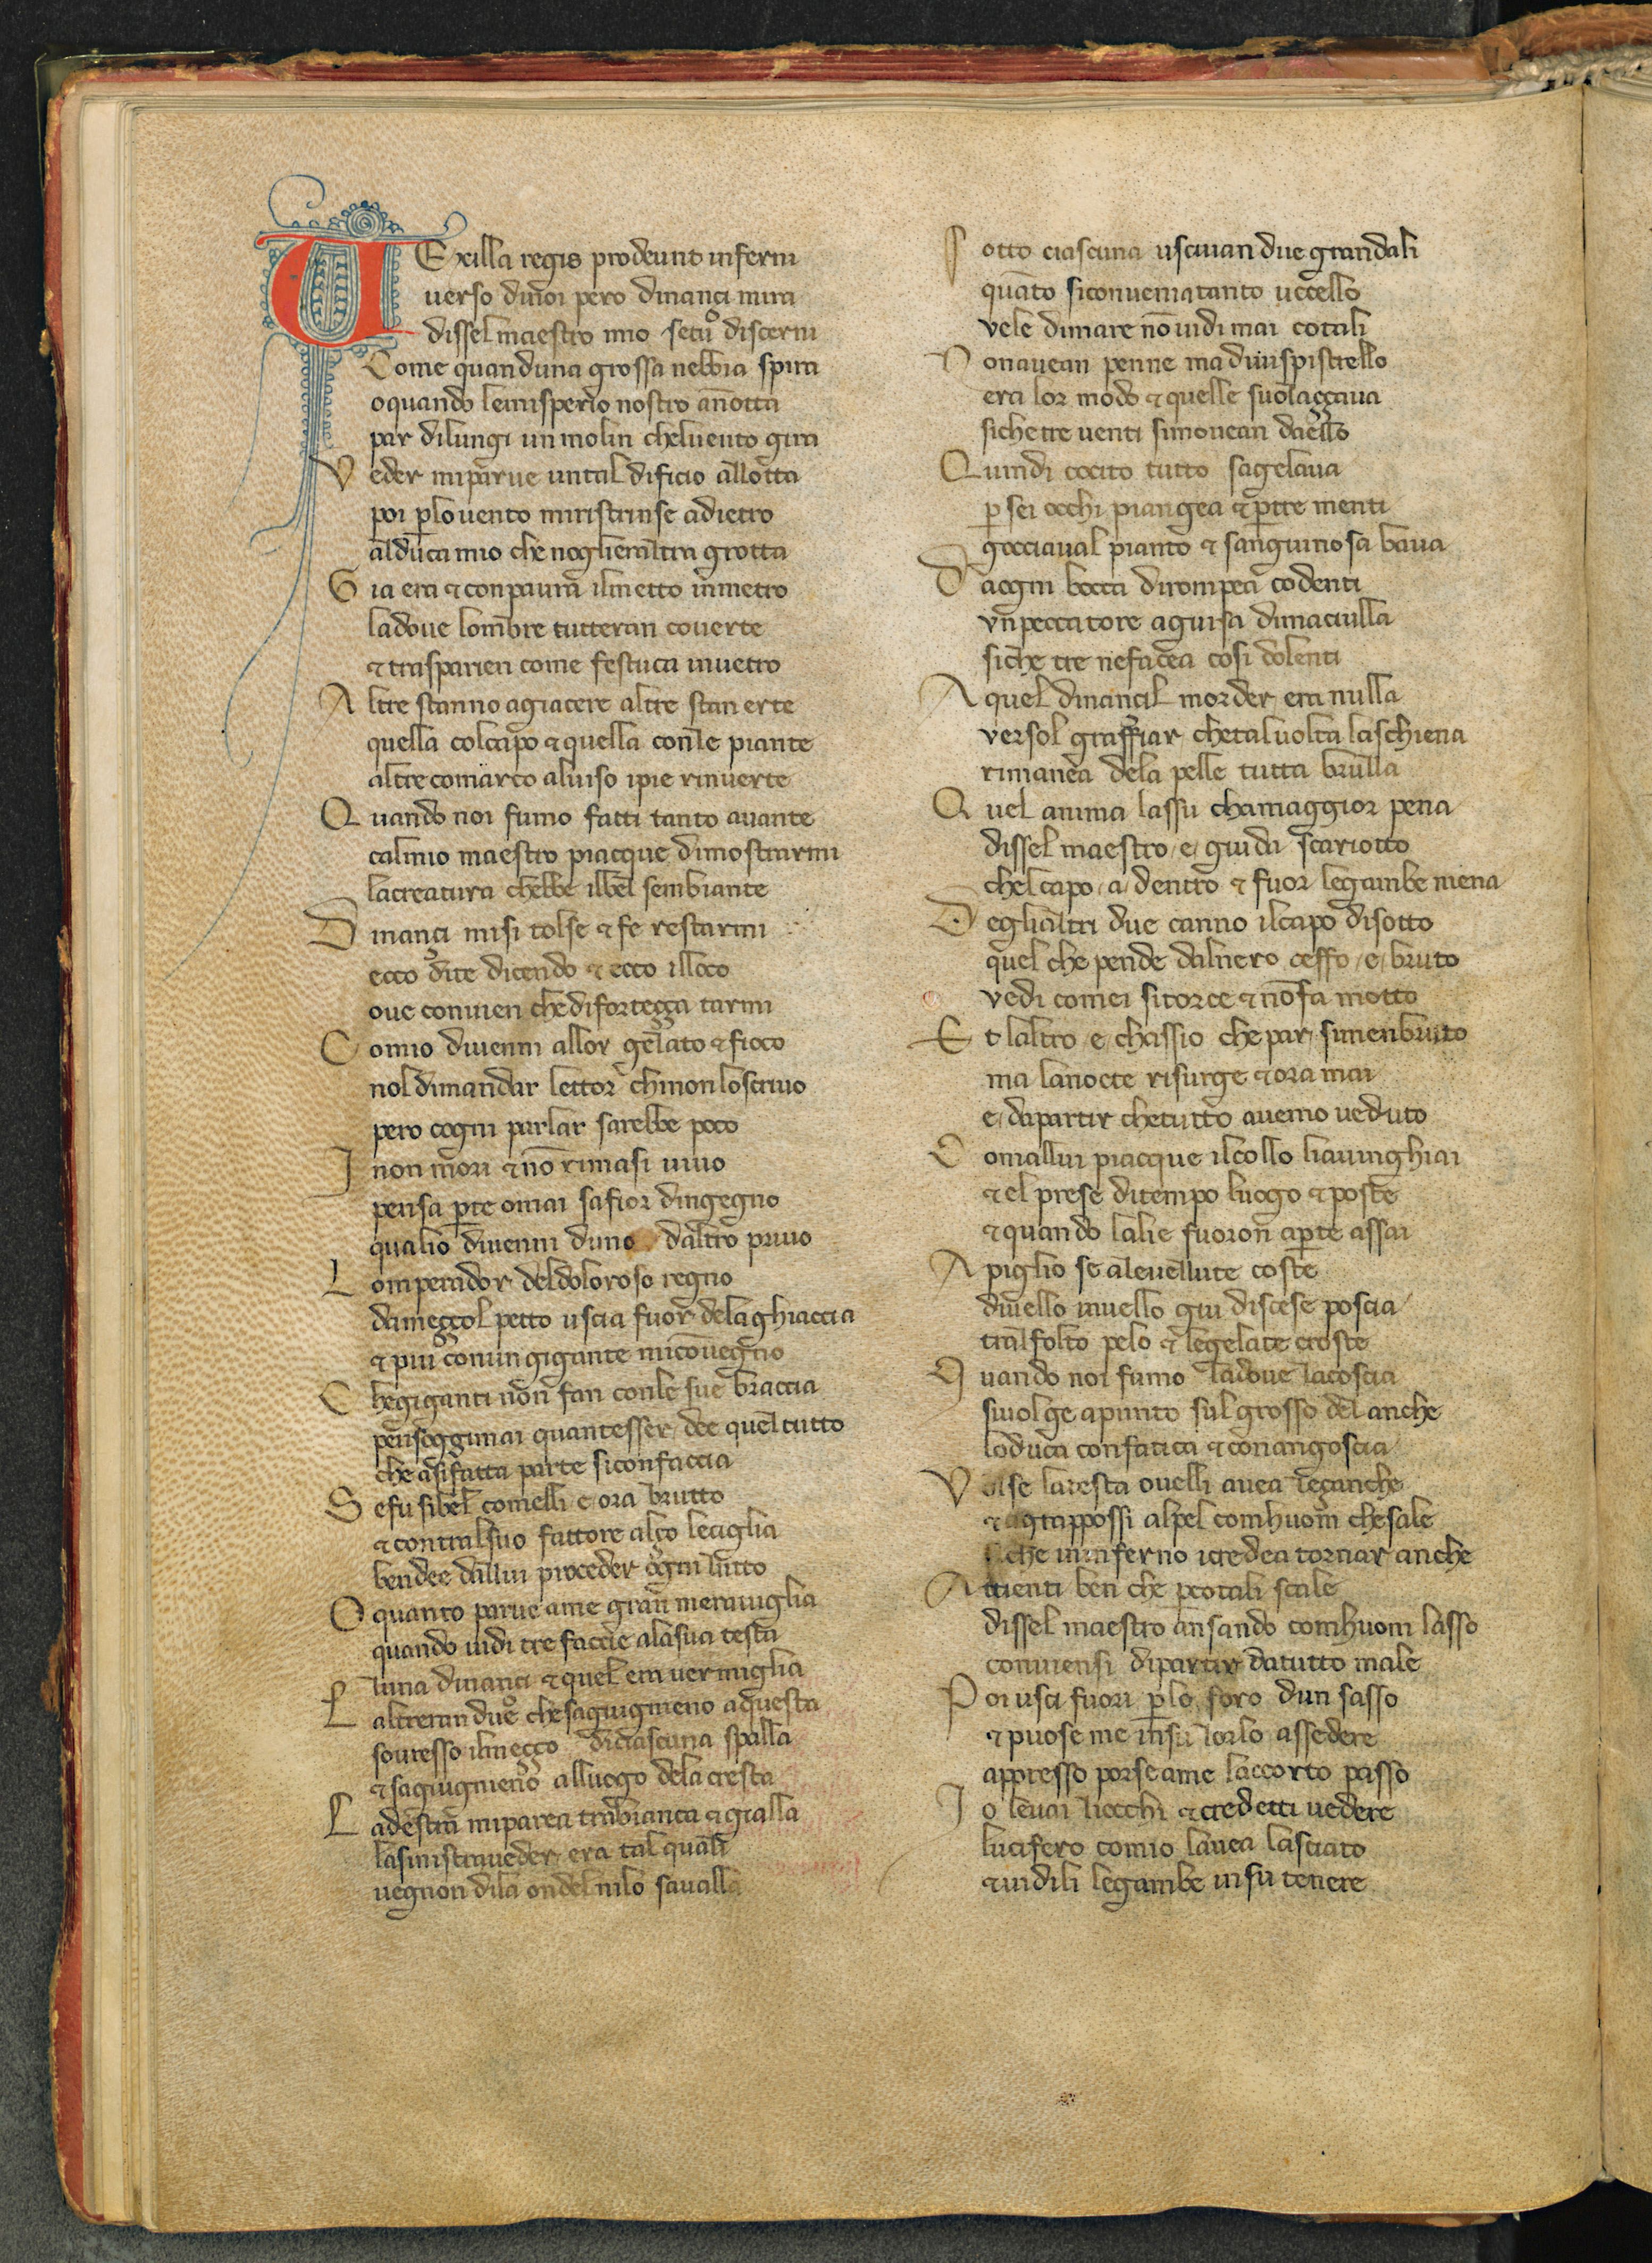 VExilla regis prodeunt inferni
uerso dinoi pero dinançi mira
dissel maestro mio setu discerni
Come quanduna grossa nebbia spira
oquando lemisperio nostro anotta
par dilungi un molin cheluento gira
Veder miparue untal dificio allotta
poi plouento miristrinse adietro
alduca mio che noglieraltra grotta
Gia era & conpaura ilmetto inmetro
ladoue lombre tutteran couerte
& trasparien come festuca inuetro
Altre stanno agiacere altre stan erte
quella colcapo & quella conle piante
altre comarco aluiso ipie rinuerte
Quando noi fumo fatti tanto auante
calmio maestro piacque dimostrarmi
lacreatura chebbe ilbel sembiante
Dinançi misi tolse & fe restarmi
ecco dite dicendo & ecco illoco
oue conuien che diforteçça tarmi
Comio diuenni allor gelato & fioco
nol dimandar lettor chinon loscriuo
pero cogni parlar sarebbe poco
Inon mori & nō rimasi uiuo
pensa pte omai safior dingegno
qualio diuenni duno daltro priuo
Lomperador deldoloroso regno
dameççol petto uscia fuor delaghiaccia
& piu conun gigante micōuegno
Chegiganti non fan conle sue braccia
pensoggimai quantesser dee quel tutto
che asifatta parte siconfaccia
Sefu sibel comelli e ora brutto
& contralsuo fattore alço leciglia
bendee dallui proceder ogni lutto
Oquanto parue ame gran merauiglia
quando uidi tre faccie alasua testa
luna dinançi & quel era uermiglia
Laltreran due chesagiugnieno aquesta
souresso ilmeçço diciascuna spalla
& sagiugnieno alluogo dela cresta
Ladestra miparea trabianca & gialla
lasinistraueder era tal quali
uegnon dila ondel nilo saualla
Sotto ciascuna usciuan due grandali
quāto siconueniatanto uccello
vele dimare nō uidi mai cotali
Nonauean penne ma diuispistrello
era lor modo & quelle suolaççaua
sichetre uenti simouean daello
Quindi cocito tutto sagelaua
p sei occhi piangea & ptre menti
gocciaual pianto & sanguinosa baua
Daogni bocca dirompea codenti
vnpeccatore aguisa dimaciulla
siche tre nefacea cosi dolenti
Aquel dinançil morder era nulla
versol graffiar chetaluolta laschiena
rimanea dela pelle tutta brulla
Quel anima lassu chamaggior pena
dissel maestro e guida scariotto
chelcapo a dentro & fuor legambe mena
Deglialtri due canno ilcapo disotto
quel che pende dalnero ceffo e bruto
vedi comei sitorce & nōfa motto
Et laltro e chassio che par simenbruto
ma lanocte risurge & ora mai
e dapartir chetutto auemo ueduto
Comallui piacque ilcollo liauinghiai
& el prese ditempo luogo & poste
& quando lalie fuoron apte assai
Apiglio se aleuellute coste
diuello inuello giu discese poscia
tralfolto pelo & legelate croste
Quando noi fumo ladoue lacoscia
siuolge apunto sul grosso del anche
loduca confatica & conangoscia
Volse latesta ouelli auea leçanche
& agrappossi alpel comhuom chesale
siche ininferno icredea tornar anche
Attienti ben che pcotali scale
dissel maestro ansando comhuom lasso
conuiensi dipartir datutto male
Poi usci fuori plo foro dun sasso
& puose me insu lorlo assedere
appresso porseame laccorto passo
Io leuai liocchi & credetti uedere
lucifero comio lauea lasciato
& uidili legambe insu tenere